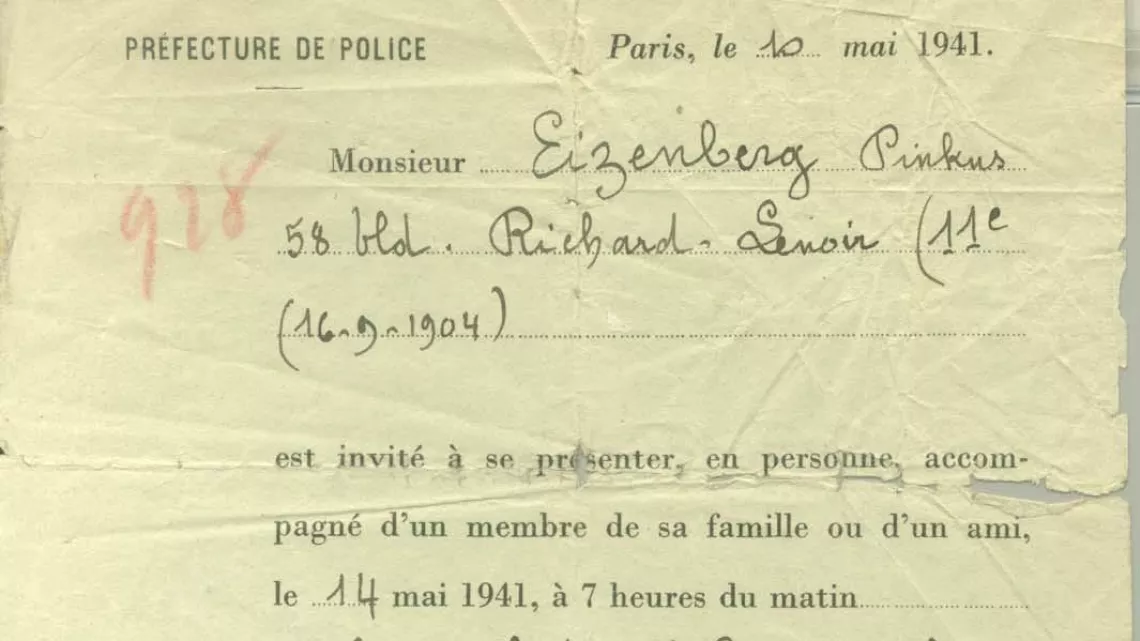 PRÉFECTURE DE POLICE
Paris, le 10 mai 1941.
928
Monsieur Eizenberg Pinkus
58 bld. Richard-Lenoir (11e
(16-9-1904)
est invité à se présenter, en personne, accom-
pagné d'un membre de sa famille ou d'un ami,
le 14 mai 1941, à 7 heures du matin